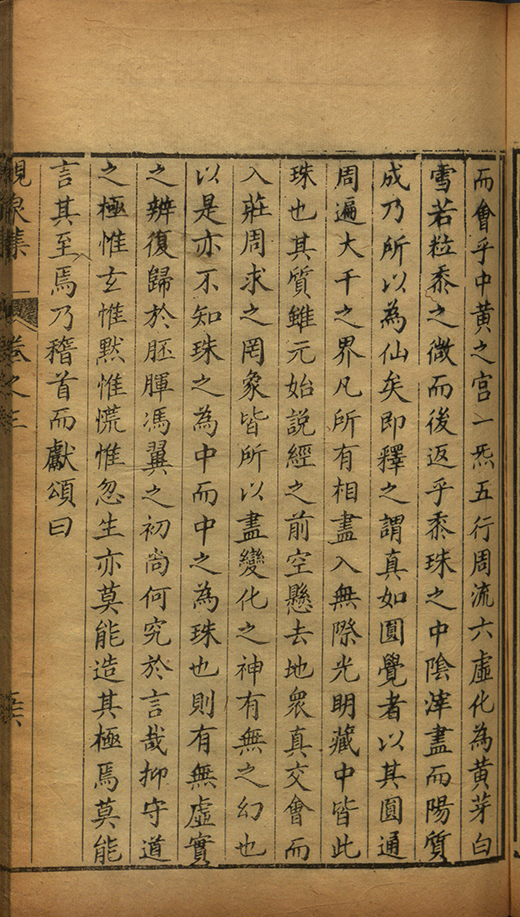 而會乎中黃之宮一炁五行周流六虛化為黃芽白
雪若粒黍之微而後返乎黍珠之中陰滓盡而陽質
成乃所以為仙矣即釋之謂真如圓覺者以其圓通
周遍大千之界凡所有相盡入無際光明藏中皆此
珠也其質雖元始說經之前空懸去地衆真交會而
入莊周求之罔象皆所以盡變化之神有無之幻也
以是亦不知珠之為中而中之為珠也則有無虛實
之辨復歸於胚腪馮翼之初尚何究於言哉抑守道
之極惟玄惟默惟慌惟忽生亦莫能造其極焉莫能
言其至焉乃稽首而獻頌曰
峴泉集 卷之三